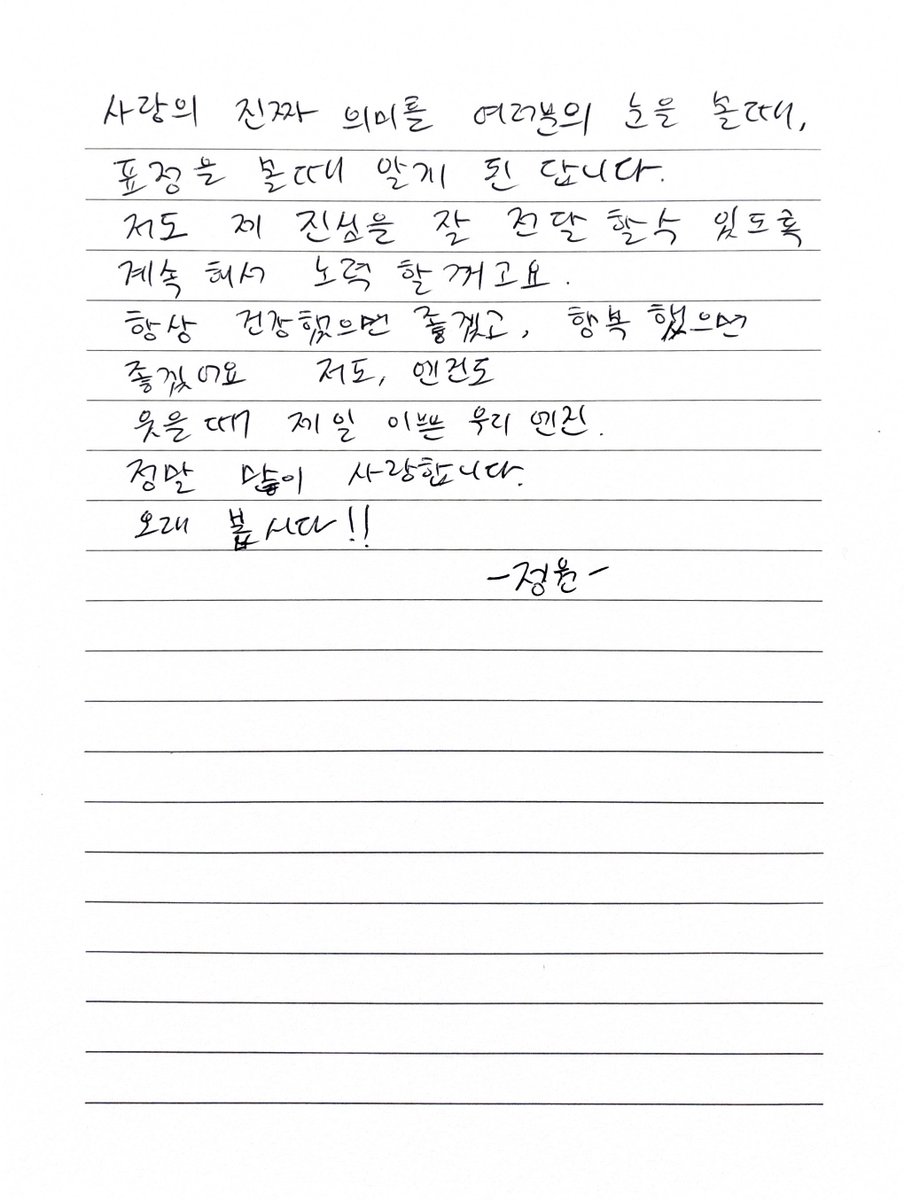 사랑의 진짜 의미를 여러분의 눈을 볼때,
표정을 볼때 알게 된 답니다.
저도 제 진심을 잘 전달 할수 있도록
계속 해서 노력 할꺼고요.
항상 건강했으면 좋겠고, 행복 했으면
좋겠어요 저도, 엔진도
웃을때 제일 이쁜 우리 엔진.
정말 많이 사랑합니다.
오래 봅시다!!
-정원-